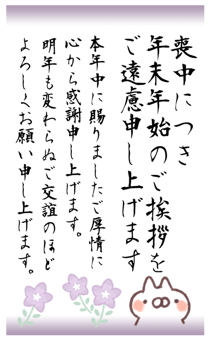 喪中につき
年末年始のご挨拶を
ご遠慮申し上げます
本年中に賜りましたご厚情に
心から感謝申し上げます。
明年も変わらぬご交誼のほど
よろしくお願い申し上げます。